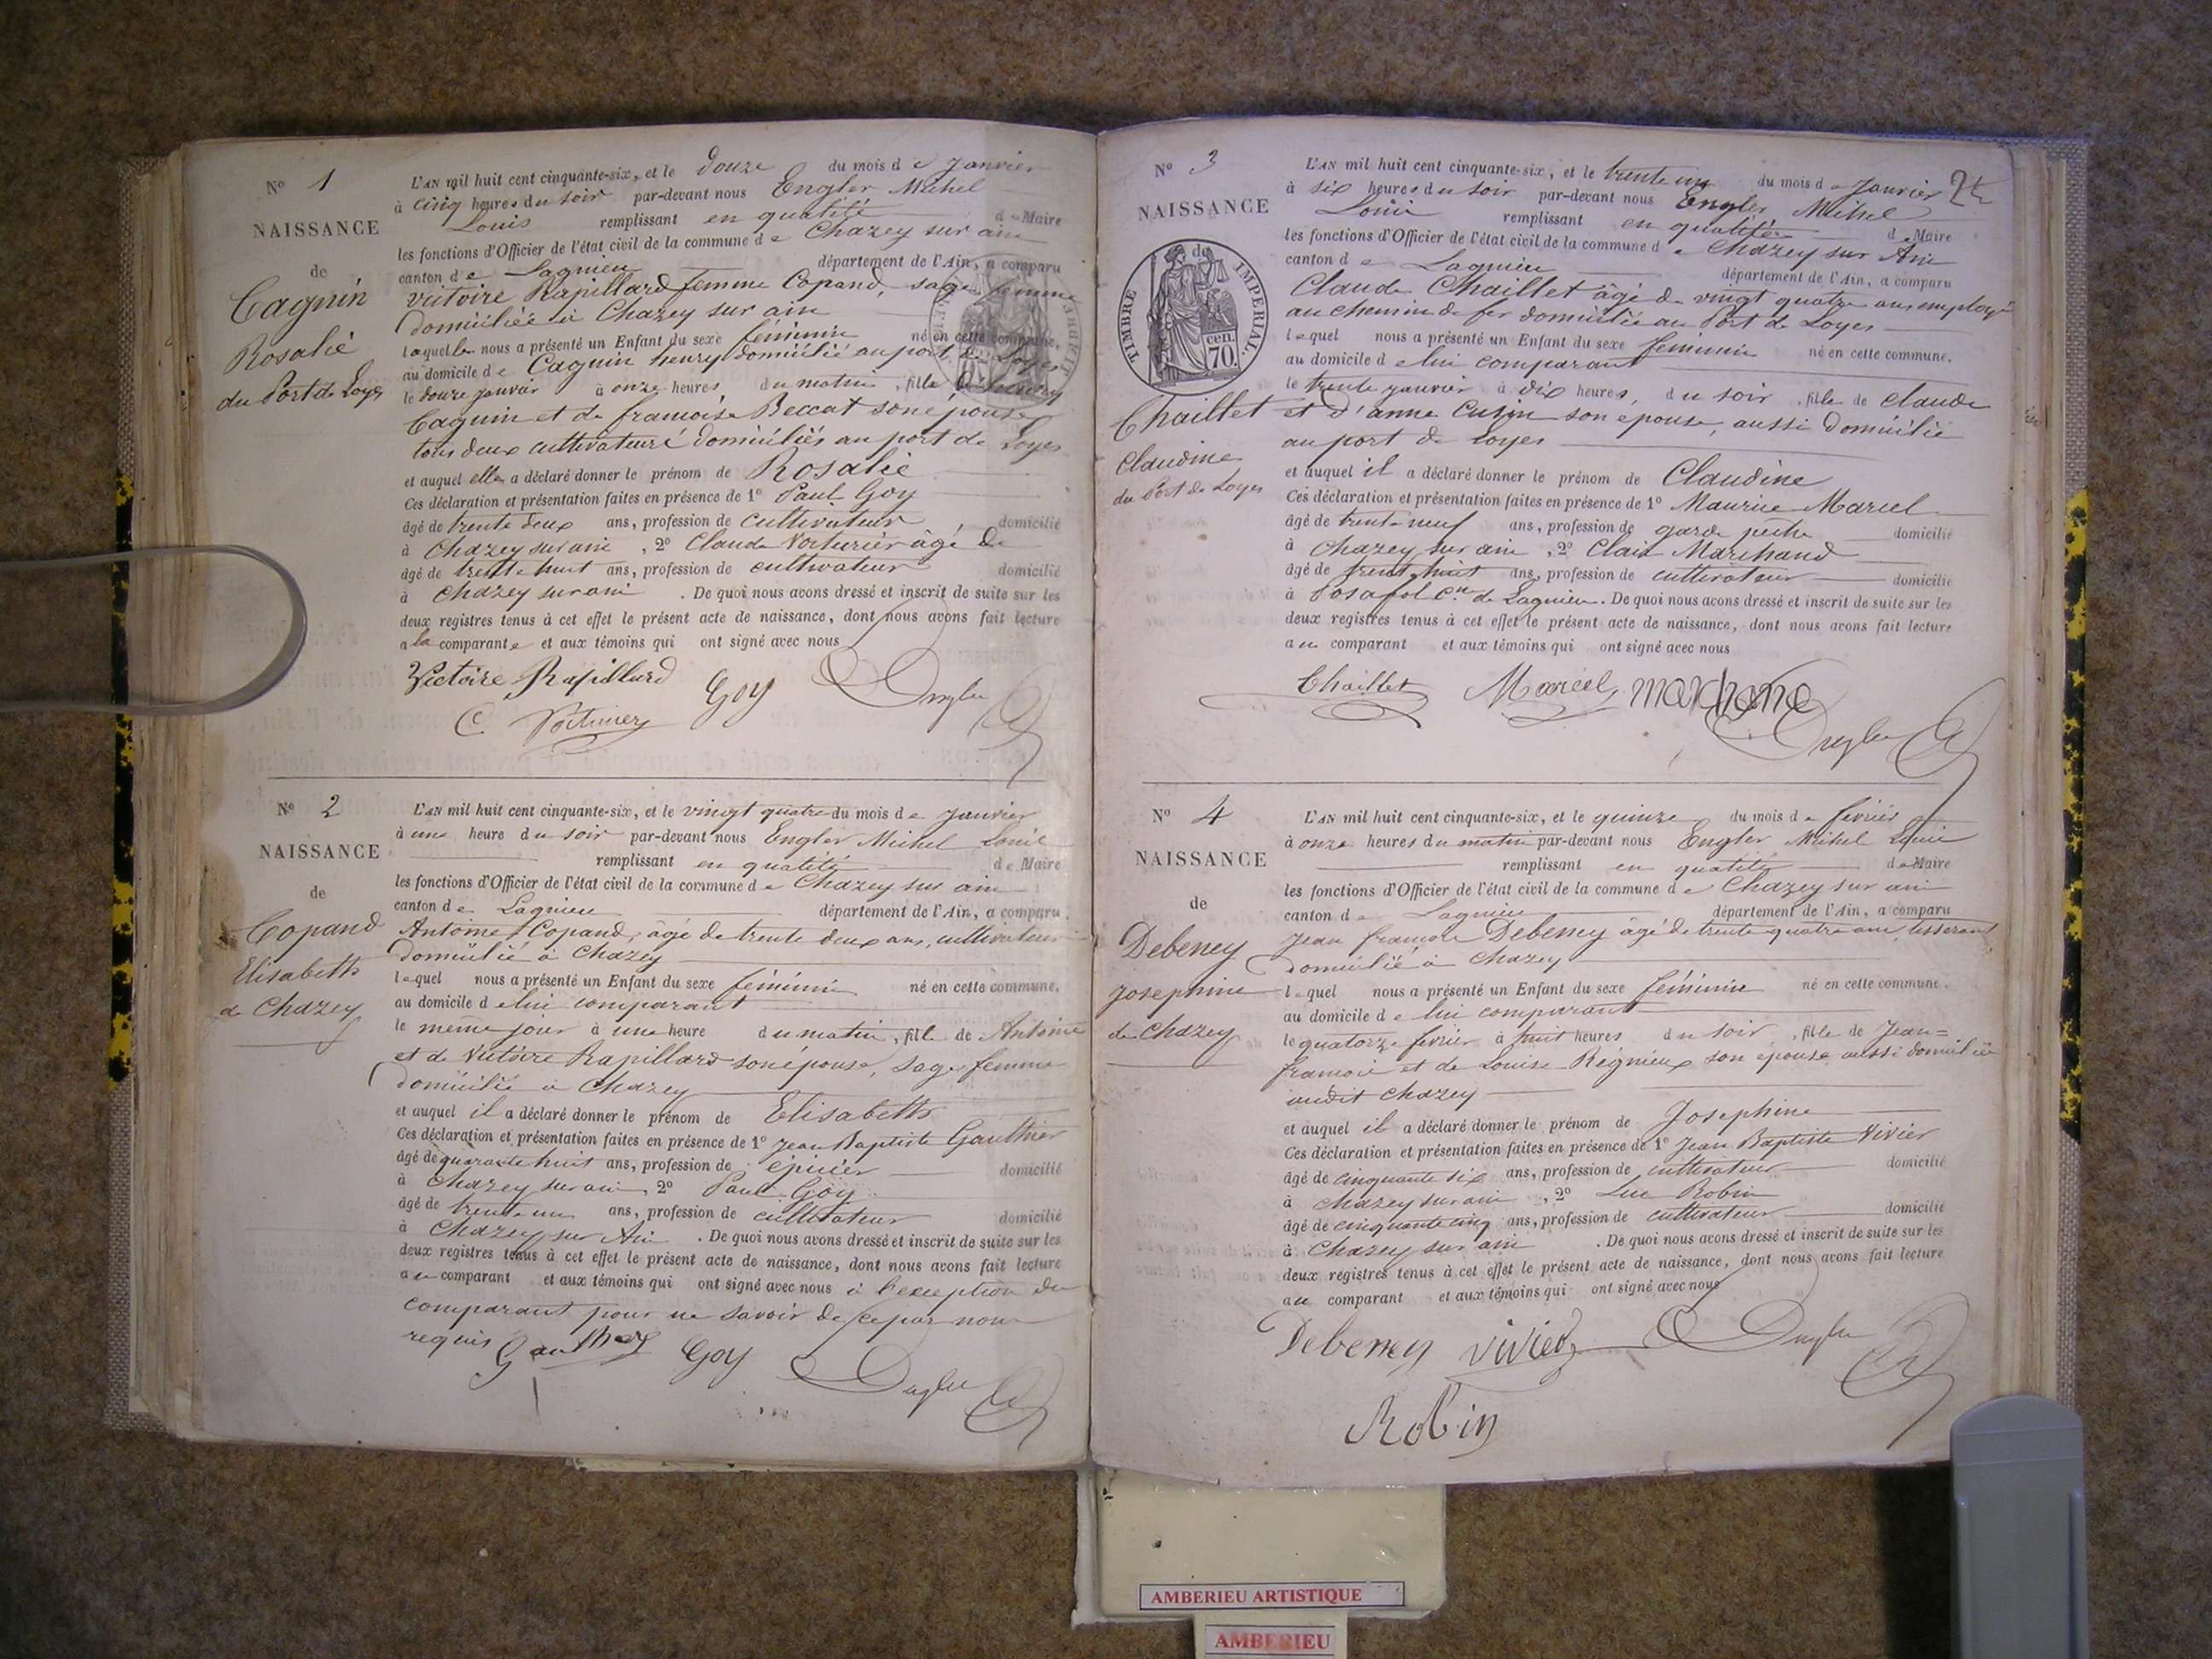 N° 1
NAISSANCE
de
Cagnin
Rosalie
du Port de Loyes
L'AN mil huit cent cinquante-six, et le douze du mois de Janvier
à cinq heures du soir par-devant nous Engler Michel
Louis remplissant en qualité de Maire
les fonctions d'Officier de l'état civil de la commune de Chazey sur ain
canton de Lagnieu département de l'Ain, a comparu
victoire Rapillard femme Copand, sage femme
domiciliée à Chazey sur ain
laquelle nous a présenté un Enfant du sexe féminin né en cette commune,
au domicile de Cagnin henry domicilié au port de Loyes
le douze janvier à onze heures du matin, fille de henry
Cagnin et de francoise Beccat son épouse
tous deux cultivateurs domiciliés au port de Loyes
et auquel elle a déclaré donner le prénom de Rosalie
Ces déclaration et présentation faites en présence de 1° Paul Goy
âgé de trente deux ans, profession de cultivateur domicilié
à Chazey sur ain, 2° Claude Voiturier âgé de
âgé de trente huit ans, profession de cultivateur domicilié
à Chazey sur ain. De quoi nous avons dressé et inscrit de suite sur les
deux registres tenus à cet effet le présent acte de naissance, dont nous avons fait lecture
a la comparante et aux témoins qui ont signé avec nous
Victoire Rapillard Goy Engler
C Voiturier
N° 2
NAISSANCE
de
Copand
Elisabeth
de Chazey
L'AN mil huit cent cinquante-six, et le vingt quatre du mois de Janvier
à une heure du soir par-devant nous Engler Michel Louis
remplissant en qualité de Maire
les fonctions d'Officier de l'état civil de la commune de Chazey sur ain
canton de Lagnieu département de l'Ain, a comparu
Antoine Copand, âgé de trente deux ans, cultivateur
domicilié à Chazey
lequel nous a présenté un Enfant du sexe féminin né en cette commune,
au domicile de lui comparant
le même jour à une heure du matin, fille de Antoine
et de Victoire Rapillard son épouse, sage femme
domicilié à Chazey
et auquel il a déclaré donner le prénom de Elisabeth
Ces déclaration et présentation faites en présence de 1° Jean Baptiste Gauthier
âgé de quarante huit ans, profession de épicier domicilié
à Chazey sur ain, 2° Paul Goy
âgé de trente un ans, profession de cultivateur domicilié
à Chazey sur Ain. De quoi nous avons dressé et inscrit de suite sur les
deux registres tenus à cet effet le présent acte de naissance, dont nous avons fait lecture
au comparant et aux témoins qui ont signé avec nous à l'exception du
comparant pour ne savoir de ce par nous
requis
Gauthier Goy Engler
N° 3
NAISSANCE
de
TIMBRE IMPERIAL.
cen.
70.
Chaillet
Claudine
du Port de Loyes
L'AN mil huit cent cinquante-six, et le trente un du mois de Janvier
à six heures du soir par-devant nous Engler Michel
Louis remplissant en qualité de Maire
les fonctions d'Officier de l'état civil de la commune de Chazey sur Ain
canton de Lagnieu département de l'Ain, a comparu
Claude Chaillet âgé de vingt quatre ans employé
au chemin de fer domicilié au Port de Loyes
lequel nous a présenté un Enfant du sexe féminin né en cette commune.
au domicile de lui comparant
le trente janvier à dix heures, du soir, fille de Claude
et d'anne Cuzin son épouse, aussi domicilié
au port de Loyes
et auquel il a déclaré donner le prénom de Claudine
Ces déclaration et présentation faites en présence de 1° Maurice Marcel
âgé de trente neuf ans, profession de garde pêche domicilié
à Chazey sur ain, 2° Clair Marchand
âgé de trente huit ans, profession de cultivateur domicilié
à Posafol Con de Lagnieu. De quoi nous avons dressé et inscrit de suite sur les
deux registres tenus à cet effet le présent acte de naissance, dont nous avons fait lecture
au comparant et aux témoins qui ont signé avec nous
Chaillet Marcel marchand
Engler
N° 4
NAISSANCE
de
Debeney
Josephine
de Chazey
L'AN mil huit cent cinquante-six, et le quinze du mois de février
à onze heures du matin par-devant nous Engler Michel Louis
remplissant en qualité de Maire
les fonctions d'Officier de l'état civil de la commune de Chazey sur ain
canton de Lagnieu département de l'Ain, a comparu
Jean francois Debeney âgé de trente quatre ans tisserand
domicilié à Chazey
lequel nous a présenté un Enfant du sexe féminin né en cette commune.
au domicile de lui comparant
le quatorze février à huit heures du soir, fille de Jean=
francois et de Louise Régnieux son épouse aussi domiciliée
audit Chazey
et auquel il a déclaré donner le prénom de Josephine
Ces déclaration et présentation faites en présence de 1° Jean Baptiste Vivier
âgé de cinquante six ans, profession de cultivateur domicilié
à Chazey sur ain, 2° Luc Robin
âgé de cinquante cinq ans, profession de cultivateur domicilié
à Chazey sur ain. De quoi nous avons dressé et inscrit de suite sur les
deux registres tenus à cet effet le présent acte de naissance, dont nous avons fait lecture
au comparant et aux témoins qui ont signé avec nous
Debeney vivier Engler
Robin
AMBERIEU ARTISTIQUE
AMBERIEU